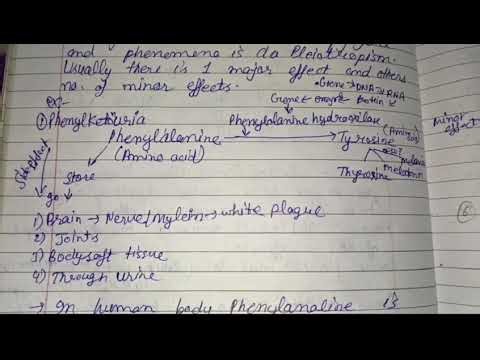 and phenomena is da Pleiotropism.
Usually there is 1 major effect and others
no. of minor effects.
Gene → DNA → RNA
ex:-
Gene → enzyme
① Phenylketonuria
Phenylalanine hydroxilase
Phenylalanine → Tyrosine
(Amino acid)
minor effect
Store
Thyroxine
go
1) Brain → Nerve/mylein → white plague
2) Joints
3) Bodysoft tissue
4) Through urine
→ In human body Phenylanaline is
6